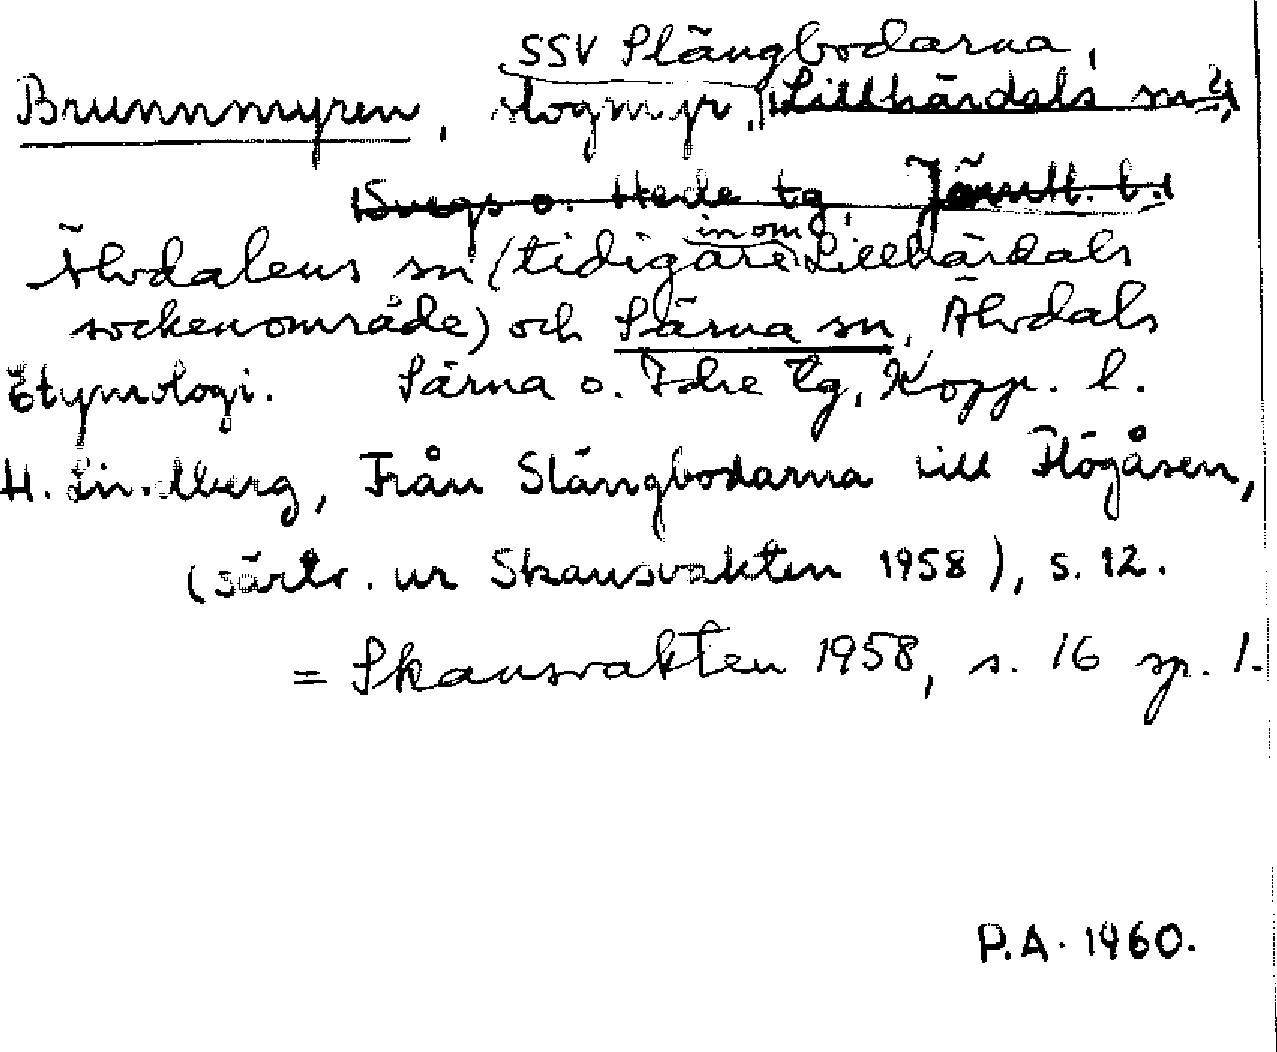 SSV Slängbodarna,
Brunnmyren, slogmyr, Lillhärdals sn,
Svegs o. Hede tg, Jämtl. l.
Älvdalens sn (tidigare inom Lillhärdals
sockenområde) och Särna sn, Älvdals
Etymologi. Särna o. Idre tg, Kopp. l.
H. Lindberg, Från Slängbodarna till Högåsen,
(särtr. ur Skansvakten 1958), s. 12.
= Skansvakten 1958, s. 16 sp. 1.
P.A. 1960.